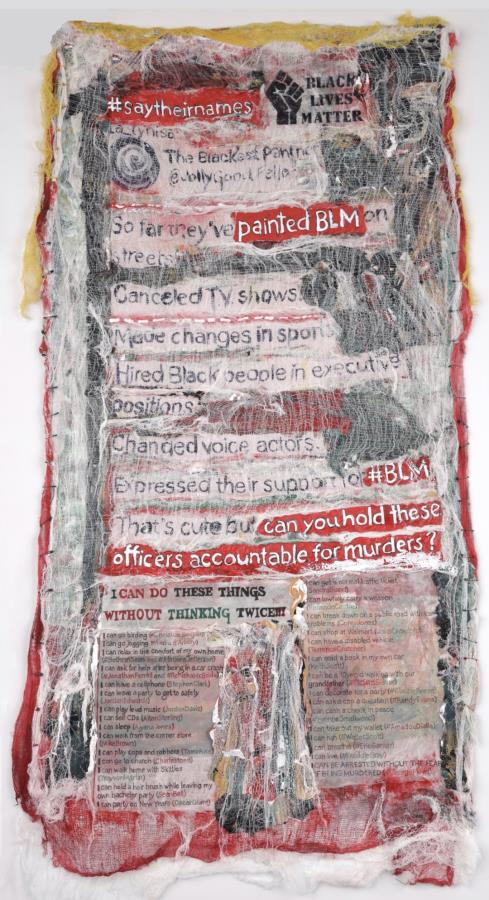 #saytheirnames
BLACK
LIVES
MATTER
La_Tynisa
The Blackest Panther
@JollyGoodFello
So far they've painted BLM on
streets.
Canceled TV shows.
Made changes in sports
Hired Black people in executive
positions
Changed voice actors.
Expressed their support for #BLM
That's cute but can you hold these
officers accountable for murders?
I CAN DO THESE THINGS
WITHOUT THINKING TWICE!!!
I can go birding
I can go jogging
I can relax in the comfort of my own home
I can ask for help after being in a car crash
I can have a cellphone (StephonClark)
I can leave a party to get to safety
(JordanEdwards)
I can play loud music (JordanDavis)
I can sell CDs (AltonSterling)
I can sleep (AiyanaJones)
I can walk from the corner store
(MikeBrown)
I can play cops and robbers
I can go to church (Charleston9)
I can walk home with Skittles
(TrayvonMartin)
I can hold a hair brush while leaving my
own bachelor party (SeanBell)
I can party on New Years (OscarGrant)
I can get a normal traffic ticket
(SandraBland)
I can lawfully carry a weapon
I can break down on a public road with car
problems (CoreyJones)
I can shop at Walmart
I can have a disabled vehicle
(TerrenceCrutcher)
I can read a book in my own car
I can be a 10yr old walking with our
grandfather
I can decorate for a party
I can ask a cop a question
I can cash a check in peace
I can take out my wallet (#AmadouDiallo)
I can run (#WalterScott)
I can breathe (#EricGarner)
I can live
I CAN BE ARRESTED WITHOUT THE FEAR
OF BEING MURDERED